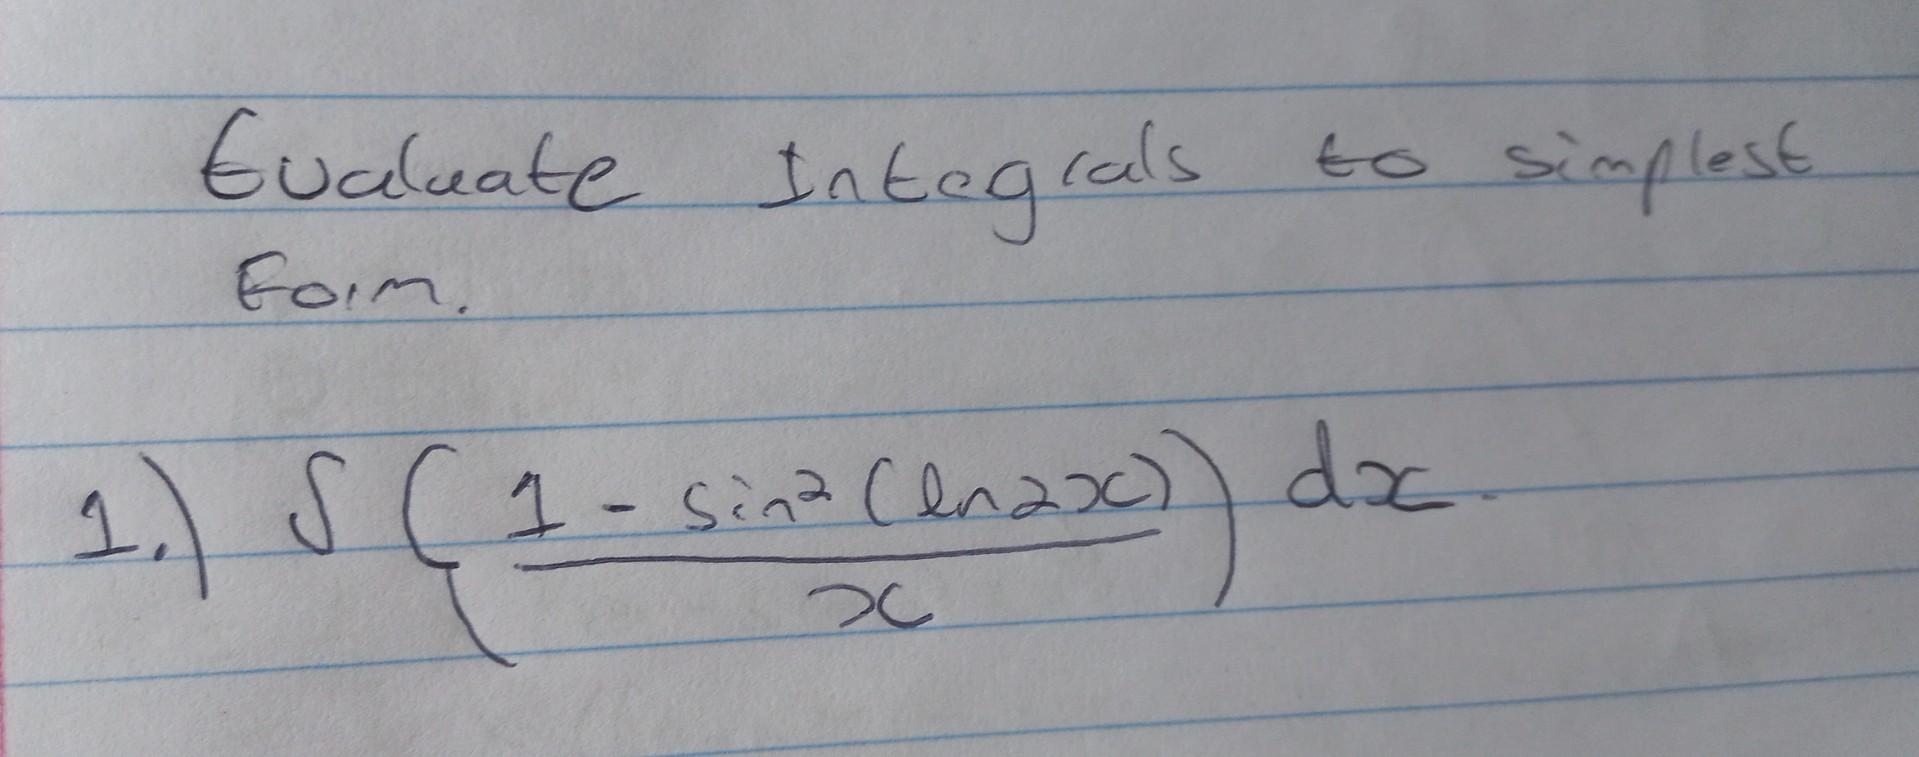 Evaluate Integrals to simplest
form.
1.) ∫ ( (1 - sin² (ln2x)) / x ) dx.